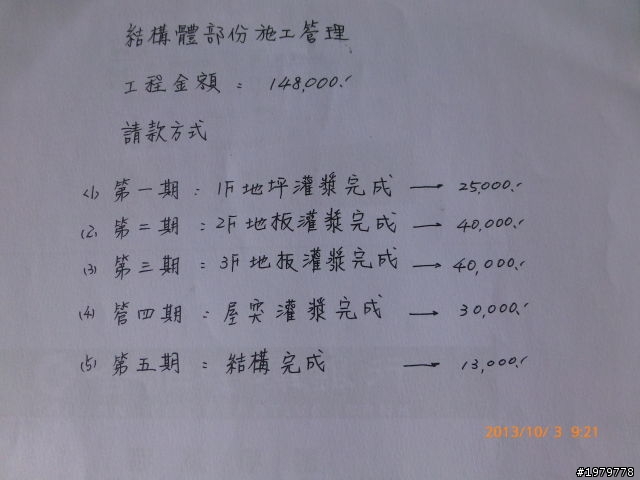 結構體部份施工管理
工程金額 : 148,000.-
請款方式
(1) 第一期 : 1F地坪灌漿完成 → 25,000.-
(2) 第二期 : 2F地板灌漿完成 → 40,000.-
(3) 第三期 : 3F地板灌漿完成 → 40,000.-
(4) 管四期 : 屋突灌漿完成 → 30,000.-
(5) 第五期 : 結構完成 → 13,000.-
2013/10/ 3 9:21
#1979778